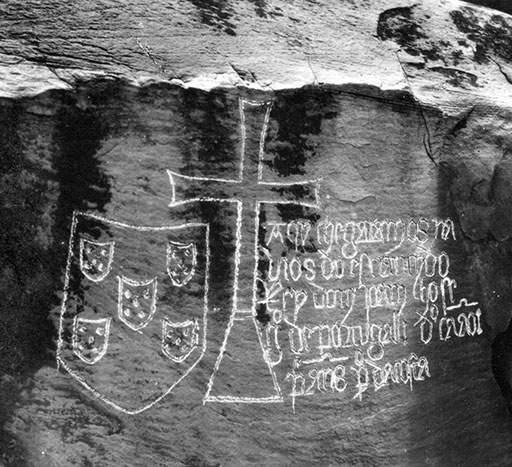 Aqy chegaram os na
vios do esclareçido
Rey dom joam ho
seg° de portugall d° caão
p° anes p° da costa